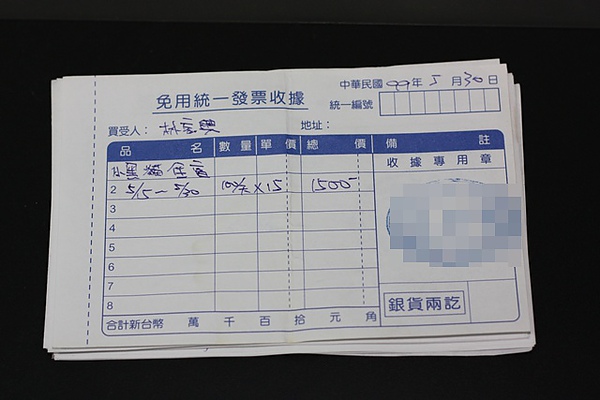 中華民國 99年 5 月 30 日
免用統一發票收據 統一編號
買受人： 林 地址：
品 名 數 量 單 價 總 價 備 註
小黑貓住宿 收據專用章
2 5/15～5/30 100/天 X15 1500
3
4
5
6
7
8 銀貨兩訖
合計新台幣 萬 千 百 拾 元 角